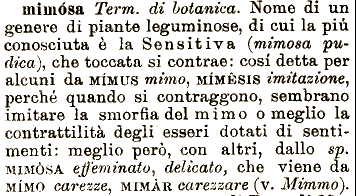 mimósa Term. di botanica. Nome di un
genere di piante leguminose, di cui la più
conosciuta è la Sensitiva (mimosa pu-
dica), che toccata si contrae: così detta per
alcuni da MÍMUS mimo, MÍMÈSIS imitazione,
perché quando si contraggono, sembrano
imitare la smorfia del mimo o meglio la
contrattilità degli esseri dotati di senti-
menti: meglio però, con altri, dallo sp.
MIMÒSA effeminato, delicato, che viene da
MÍMO carezze, MIMÁR carezzare (v. Mimmo).